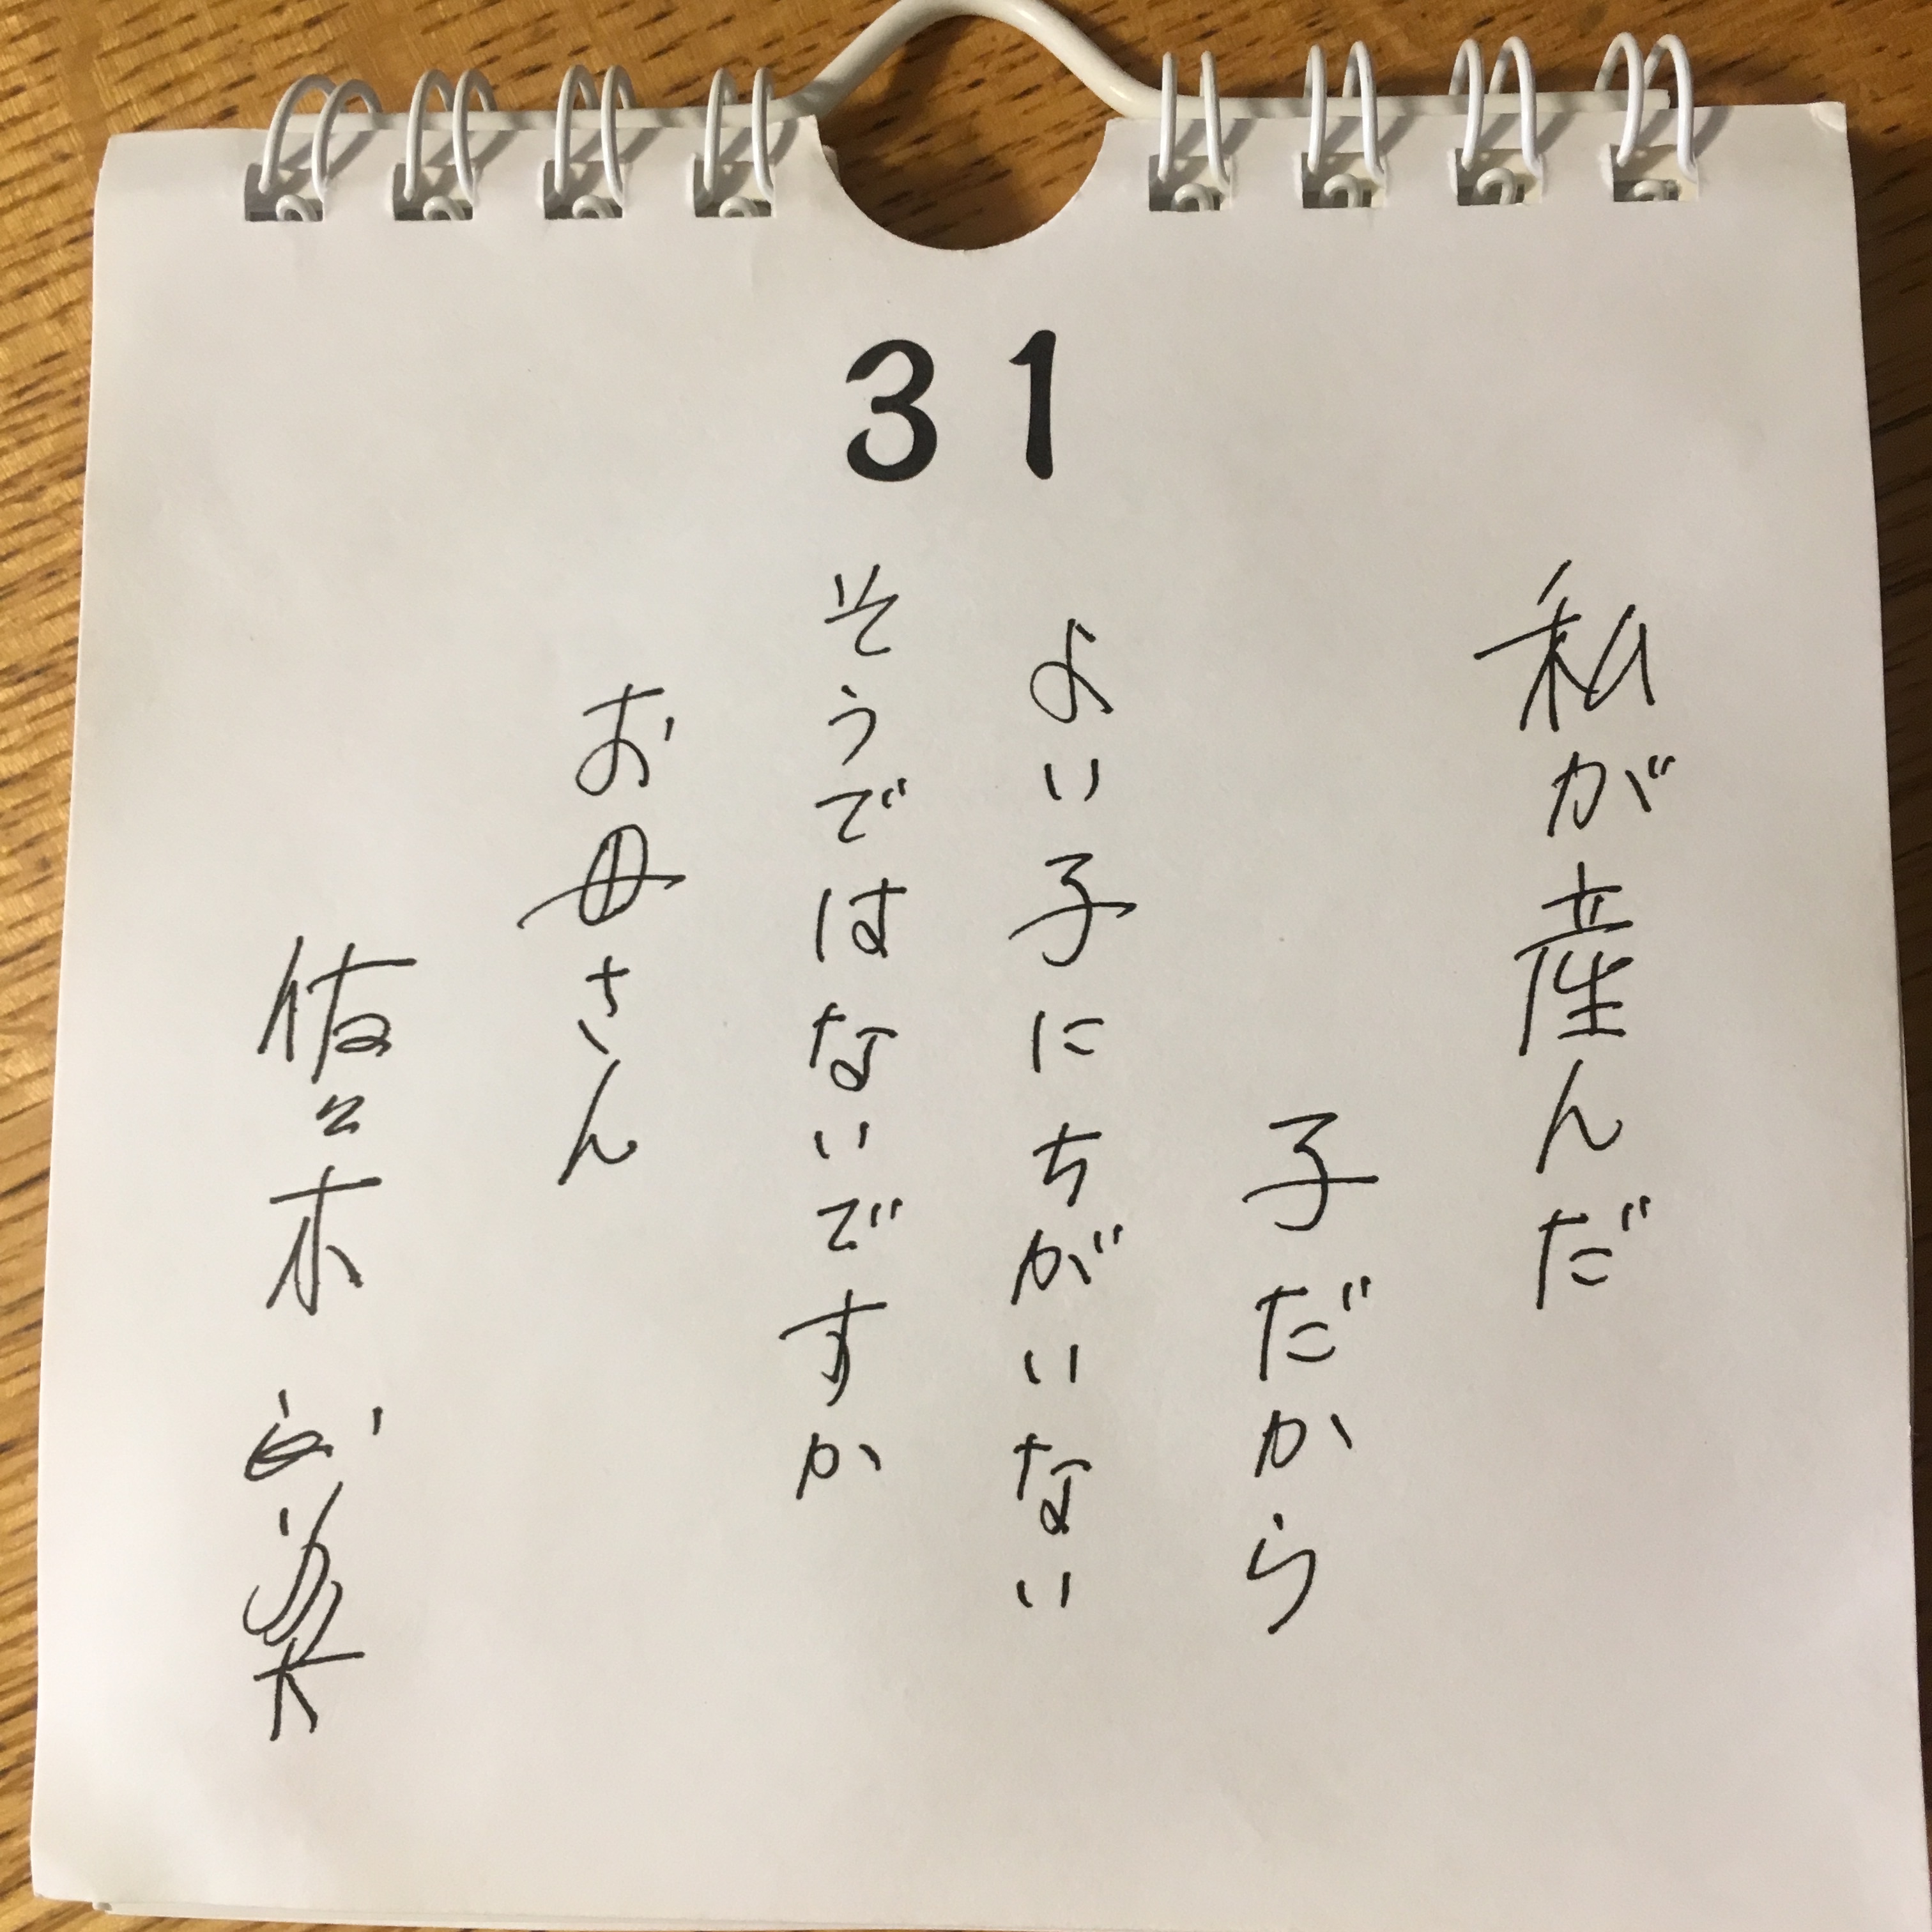 31
私が産んだ
子だから
よい子にちがいない
そうではないですか
お母さん
佐々木正美